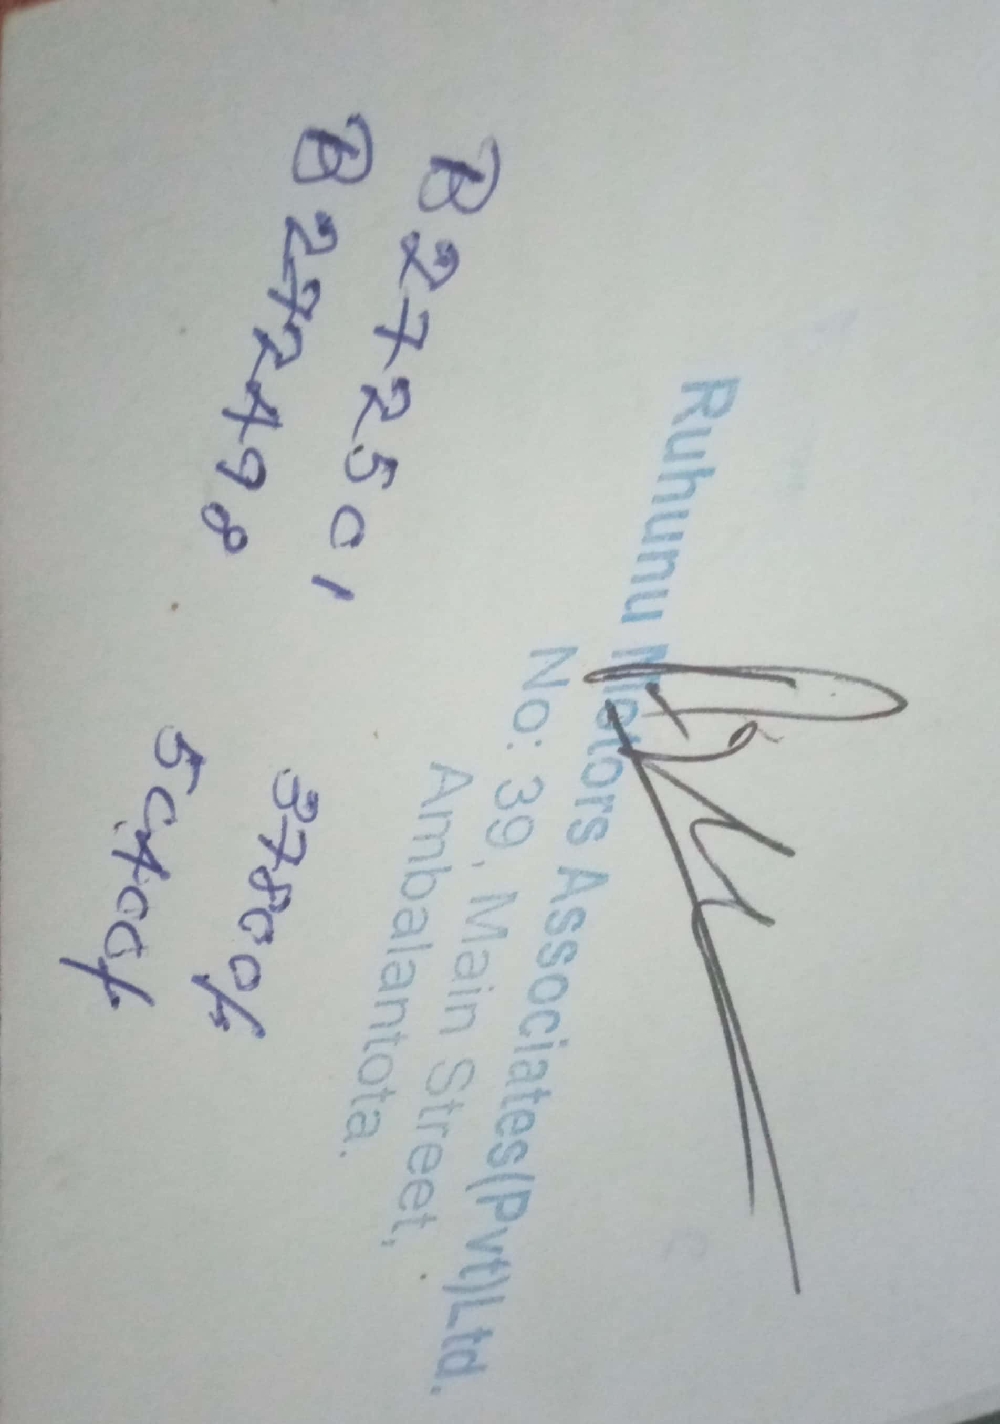 Ruhunu Motors Associates(Pvt)Ltd.
No: 39, Main Street,
Ambalantota.
B 272501
B 272498
37800/-
50400/-